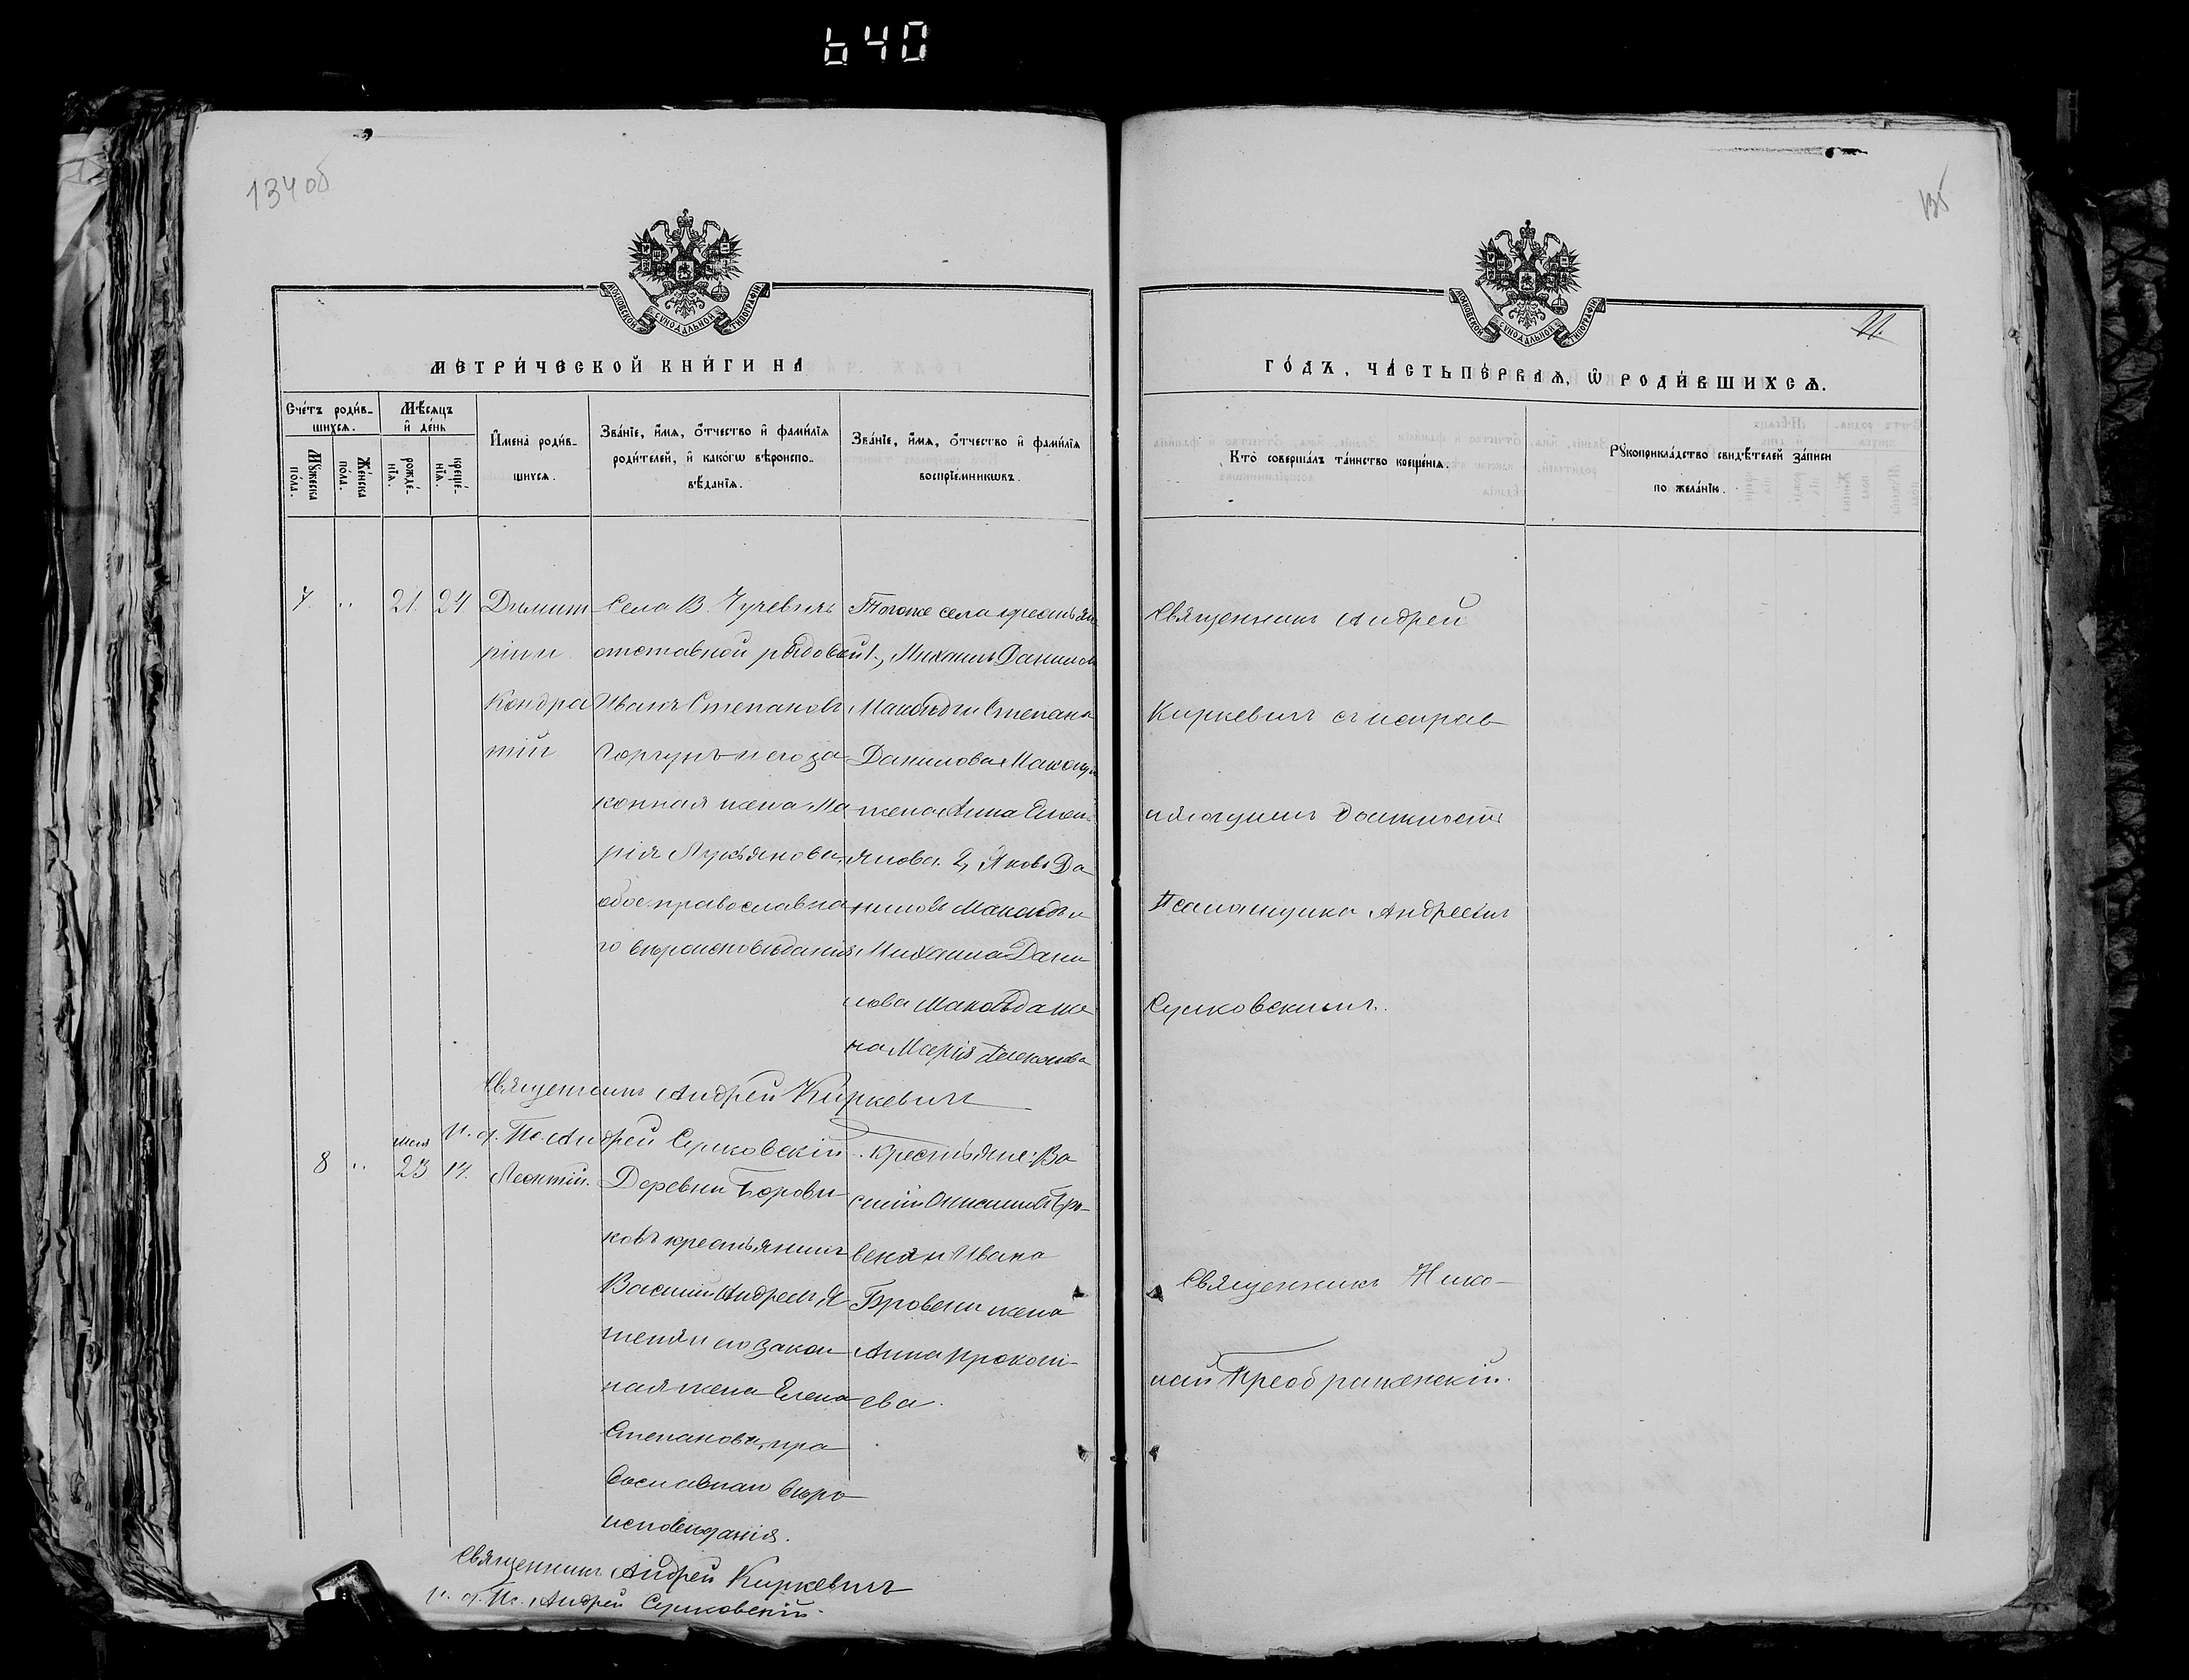 640
134 об
135
МОСКОВСКОЙ СѴНОДАЛЬНОЙ ТИПОГРАФІИ
МОСКОВСКОЙ СѴНОДАЛЬНОЙ ТИПОГРАФІИ
МЕТРИ́ЧЕСКОЙ КНИ́ГИ НА
ГО́ДЪ, ЧА́СТЬ ПЕ́РВАѦ, Ѡ҆ РОДИ́ВШИХСѦ.
Сче́тъ роди́в-
шихсѧ.
Мѣ́сѧцъ
и҆ де́нь
Мꙋ́жеска
по́ла.
Же́нска
по́ла.
рожде́-
нїѧ.
креще́-
нїѧ.
И҆мена̀ роди́в-
шихсѧ.
Зва́нїе, и҆́мѧ, ѻ҆́тчество и҆ фами́лїѧ
роди́телей, и҆ како́гѡ вѣроиспо-
вѣ́данїѧ.
Зва́нїе, и҆́мѧ, ѻ҆́тчество и҆ фами́лїѧ
воспрїе́мникѡвъ.
Кто̀ соверша́лъ та́инство креще́нїѧ.
Рꙋкоприкла́дство свидѣ́телей за́писи
по жела́нїю.
7. " 21. 24
Димит
рій и
Кондра
тій
Села В. Чучевичъ
отставной рядовой
Иванъ Степановъ
и его за
конная жена Ма
рія Лукьянова,
обое православна
го вѣроисповѣданія
Тогоже села крестьяне
1., Михаилъ Данилов
и Степана
Данилова
жена Анна Емель
янова. 2, Яковъ Да
ниловъ и
Михаила Дани
лова же
на Марія
Священникъ Андрей
Киркевичъ съ исправ
ляющимъ должность
Псаломщика Андреемъ
Сулковскимъ.
Священникъ Андрей Киркевичъ
И. д. Пс. Андрей Сулковскій.
8 " мая 23 14. Леонтій.
Деревни Борови
ковъ крестьянинъ
Василій Андреевъ
и его закон
ная жена Елена
Степанова, пра
вославнаго вѣро
исповѣданія.
крестьяне: Ва
силій
и Ивана
жена
Анна Прокопі-
ева.
Священникъ Нико-
лай Преображенскій.
Священникъ Андрей Киркевичъ
И. д. Пс. Андрей Сулковскій.